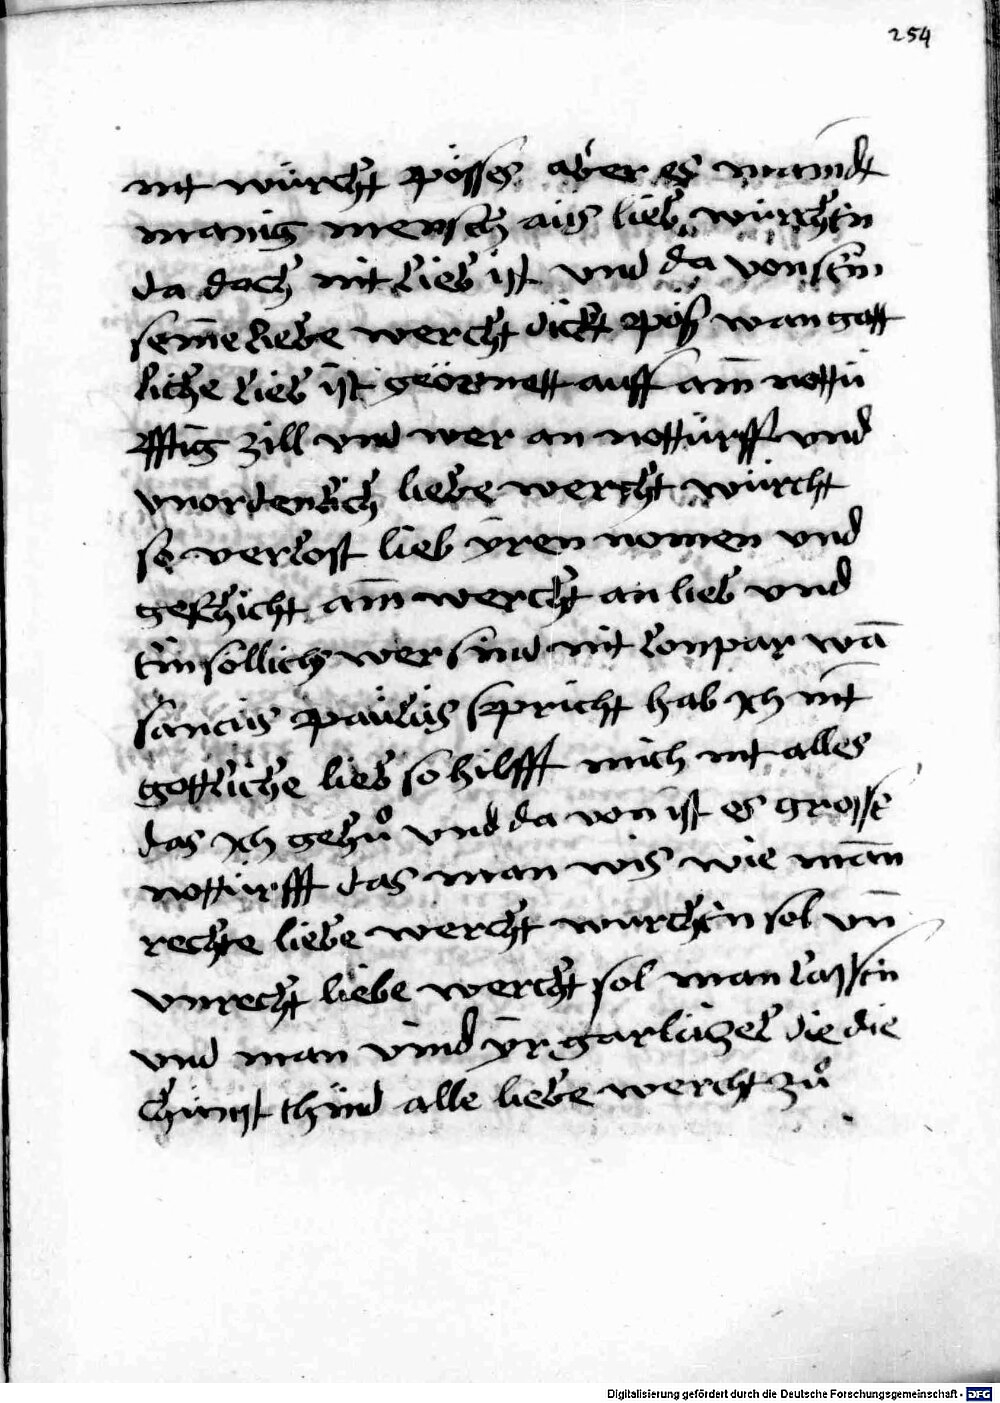 254
nit würcht pösses aber es maindt
manig mensch aus lieb würchtn
da doch nit lieb ist vnd da von sein
seine liebe wercht dickt pöß wan gott
liche lieb ist geörnett auff ain nottü
rfftig zill vnd wer an nottürfft vnd
vnordenlich liebe wercht würcht
so verlost lieb yren nomen vnd
geschicht ain wercht an lieb vnd
sollich wer sind nit lonpar wā
sanctus paulus spricht hab ich nit
gottliche lieb so hilfft mich nit alles
das ich gehů vnd da von ist es grosse
nottürfft das man wis wie man
rechte liebe wercht würchtn sol vn̄
vnrecht liebe wercht sol man lassen
vnd man vind yr gar lützel die die
chunst thünd alle liebe wercht zů
Digitalisierung gefördert durch die Deutsche Forschungsgemeinschaft - DFG